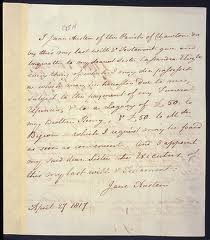 I Jane Austen of the Parish of Chawton do
by this my last Will & Testament give and
bequeath to my dearest Sister Cassandra Eliz.th
every thing of which I may die possessed,
or which may be hereafter due to me,
subject to the payment of my Funeral
Expences, & to a Legacy of £50. to
my Brother Henry, & £50. to M.de
Bigeon - which I request may be paid
as soon as convenient. And I appoint
my said dear Sister the Executrix of
this my last Will & Testament.
Jane Austen
April 27. 1817.